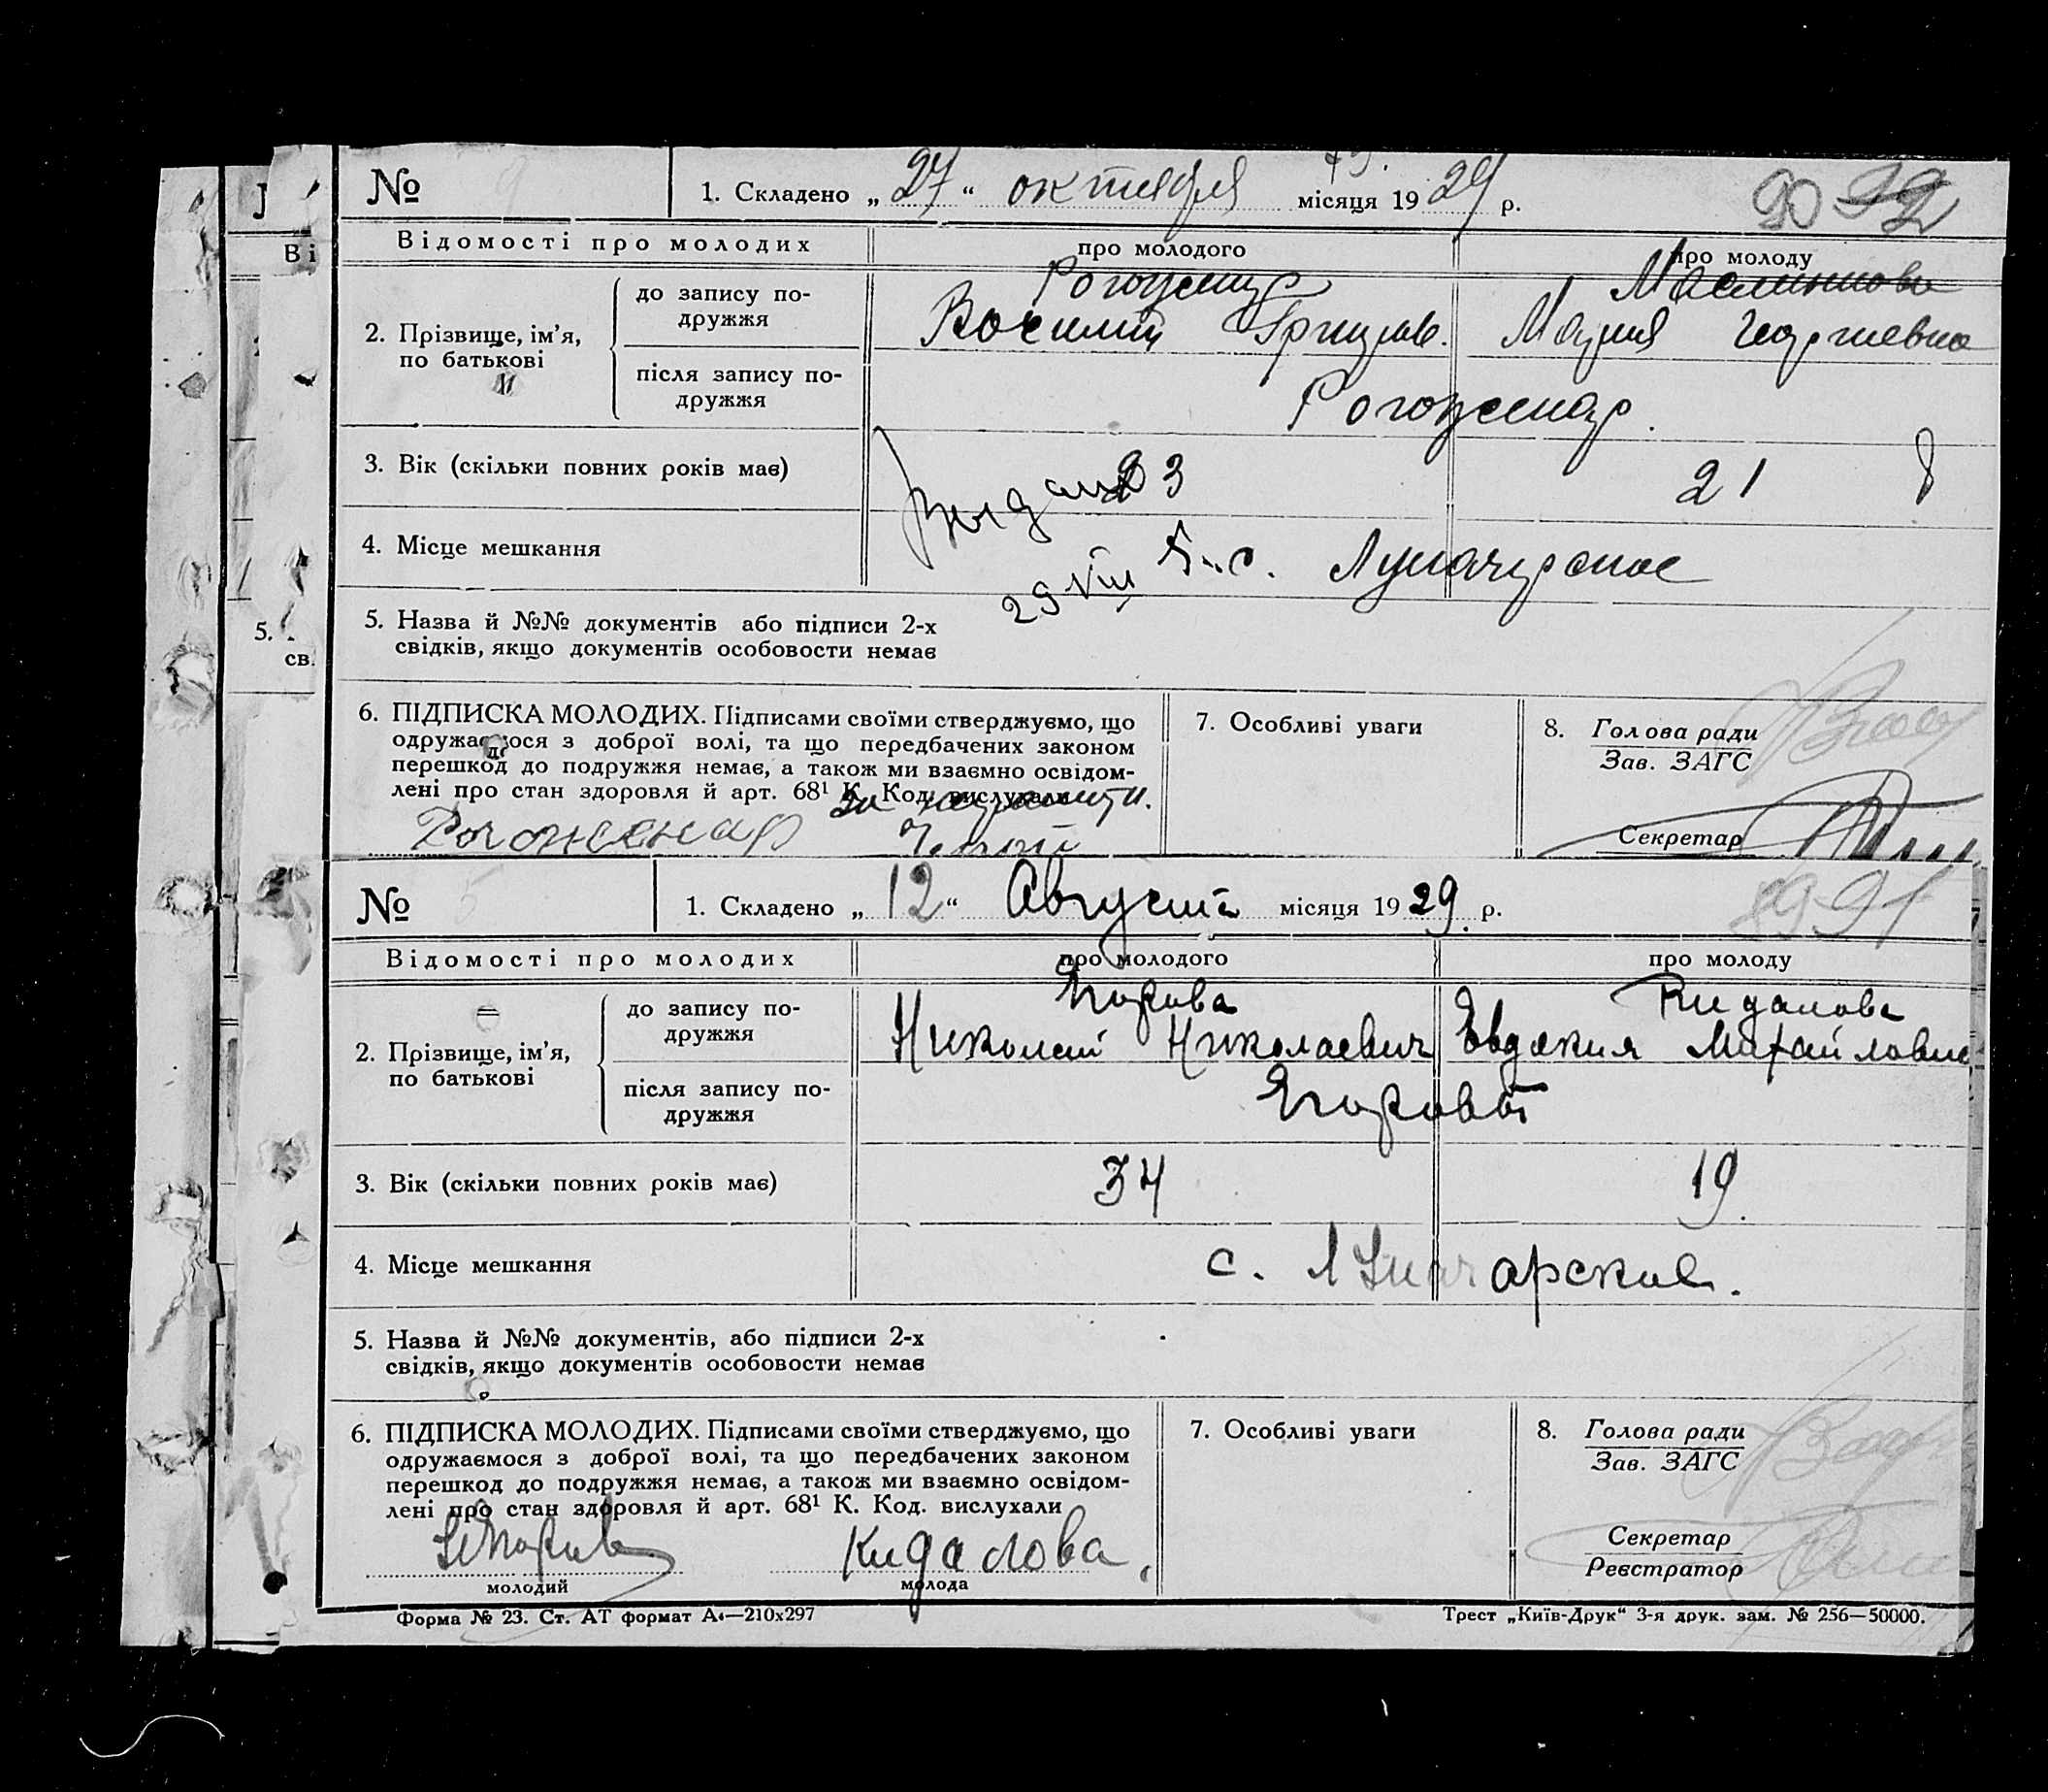 № 9
1. Складено „27“ октября місяця 1929 р.
90 92
Відомості про молодих
про молодого
про молоду
2. Прізвище, ім’я, по батькові
до запису подружжя
Рогоженар
Василий Григорьев.
Мария Георгиевна
після запису подружжя
Рогоженар.
3. Вік (скільки повних років має)
23
21
4. Місце мешкання
с. Луначарское
Выдано
29 VIII
5. Назва й №№ документів або підписи 2-х
свідків, якщо документів особовости немає
6. ПІДПИСКА МОЛОДИХ. Підписами своїми стверджуємо, що
одружаємося з доброї волі, та що передбачених законом
перешкод до подружжя немає, а також ми взаємно освідом-
лені про стан здоровля й арт. 68¹ К. Код. вислухали
за неграмотн.
Рогоженар
7. Особливі уваги
8. Голова ради
Зав. ЗАГС
Секретар
№ 5
1. Складено „12“ Августа місяця 1929. р.
91
Відомості про молодих
про молодого
про молоду
2. Прізвище, ім’я,
по батькові
до запису по-
дружжя
Егорова
Николай Николаевич
Кидалова
Евдокия Михайловна
після запису по-
дружжя
Егоровы
3. Вік (скільки повних років має)
34
19.
4. Місце мешкання
с. Луначарское.
5. Назва й №№ документів, або підписи 2-х
свідків, якщо документів особовости немає
6. ПІДПИСКА МОЛОДИХ. Підписами своїми стверджуємо, що
одружаємося з доброї волі, та що передбачених законом
перешкод до подружжя немає, а також ми взаємно освідом-
лені про стан здоровля й арт. 68¹ К. Код. вислухали
Кидалова
молодий
молода
7. Особливі уваги
8. Голова ради
Зав. ЗАГС
Секретар
Реєстратор
Форма № 23. Ст. АТ формат А₄—210х297
Трест „Київ-Друк“ 3-я друк. зам. № 256—50000.